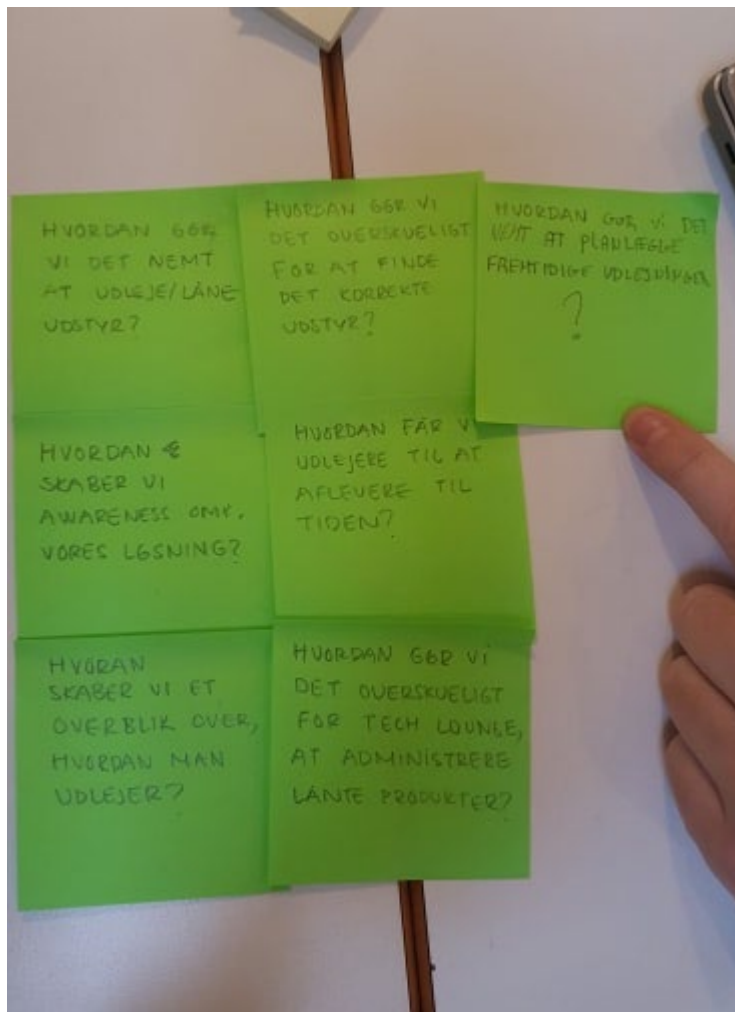 HVORDAN GØR
VI DET NEMT
AT UDLEJE/LÅNE
UDSTYR?
HVORDAN GØR VI
DET OVERSKUELIGT
FOR AT FINDE
DET KORREKTE
UDSTYR?
HVORDAN GØR VI DET
NEMT AT PLANLÆGGE
FREMTIDIGE UDLEJNINGER
?
HVORDAN
SKABER VI
AWARENESS OMK.
VORES LØSNING?
HVORDAN FÅR VI
UDLEJERE TIL AT
AFLEVERE TIL
TIDEN?
HVORAN
SKABER VI ET
OVERBLIK OVER,
HVORDAN MAN
UDLEJER?
HVORDAN GØR VI
DET OVERSKUELIGT
FOR TECH LOUNGE,
AT ADMINISTRERE
LÅNTE PRODUKTER?